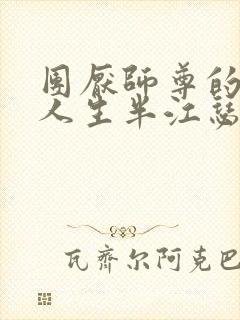 團厭師尊的
人生半江瑟
瓦齊尔阿克巴